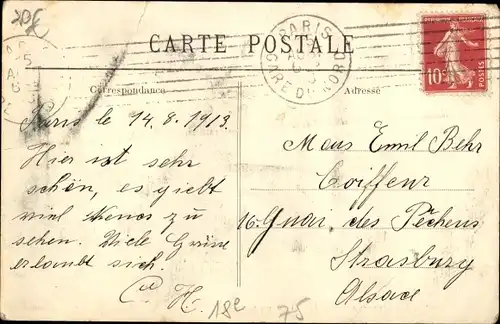 CARTE POSTALE
Correspondance
Adresse
PARIS
GARE DU NORD
10c
Paris le 14.8.1913.
Hier ist sehr
schön, es giebt
viel Neues zu
sehen. Viele Grüsse
erlaubt sich.
Mons Emil Behr
Coiffeur
16 Quai des Pêcheurs
Strasburg
Alsace
18e
75